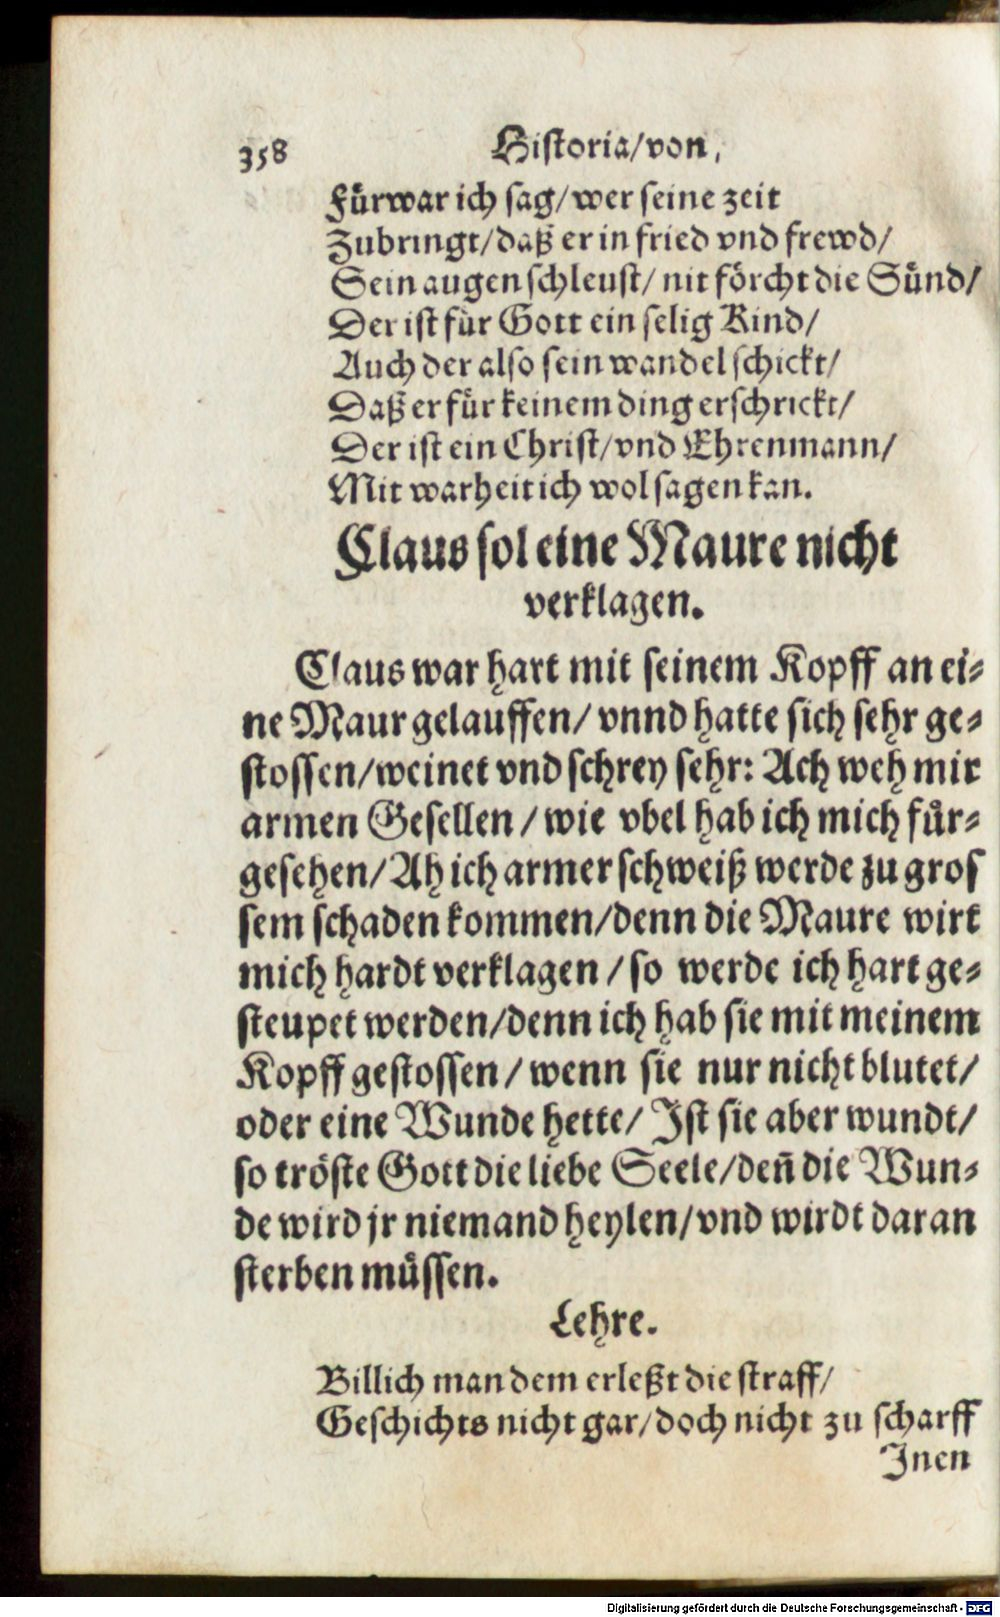 358 Historia/von,
Fürwar ich sag/wer seine zeit
Zubringt/daß er in fried vnd frewd/
Sein augen schleust/ nit förcht die Sünd/
Der ist für Gott ein selig Kind/
Auch der also sein wandel schickt/
Daß er für keinem ding erschrickt/
Der ist ein Christ/vnd Ehrenmann/
Mit warheit ich wol sagen kan.
Claus sol eine Maure nicht
verklagen.
Claus war hart mit seinem Kopff an ei⸗
ne Maur gelauffen/ vnnd hatte sich sehr ge⸗
stossen/weinet vnd schrey sehr: Ach weh mir
armen Gesellen / wie vbel hab ich mich für⸗
gesehen/Ah ich armer schweiß werde zu gros
sem schaden kommen/denn die Maure wirt
mich hardt verklagen / so werde ich hart ge⸗
steupet werden/denn ich hab sie mit meinem
Kopff gestossen / wenn sie nur nicht blutet/
oder eine Wunde hette/ Ist sie aber wundt/
so tröste Gott die liebe Seele/deñ die Wun⸗
de wird jr niemand heylen/vnd wirdt daran
sterben müssen.
Lehre.
Billich man dem erleßt die straff/
Geschichts nicht gar/doch nicht zu scharff
Inen
Digitalisierung gefördert durch die Deutsche Forschungsgemeinschaft - DFG